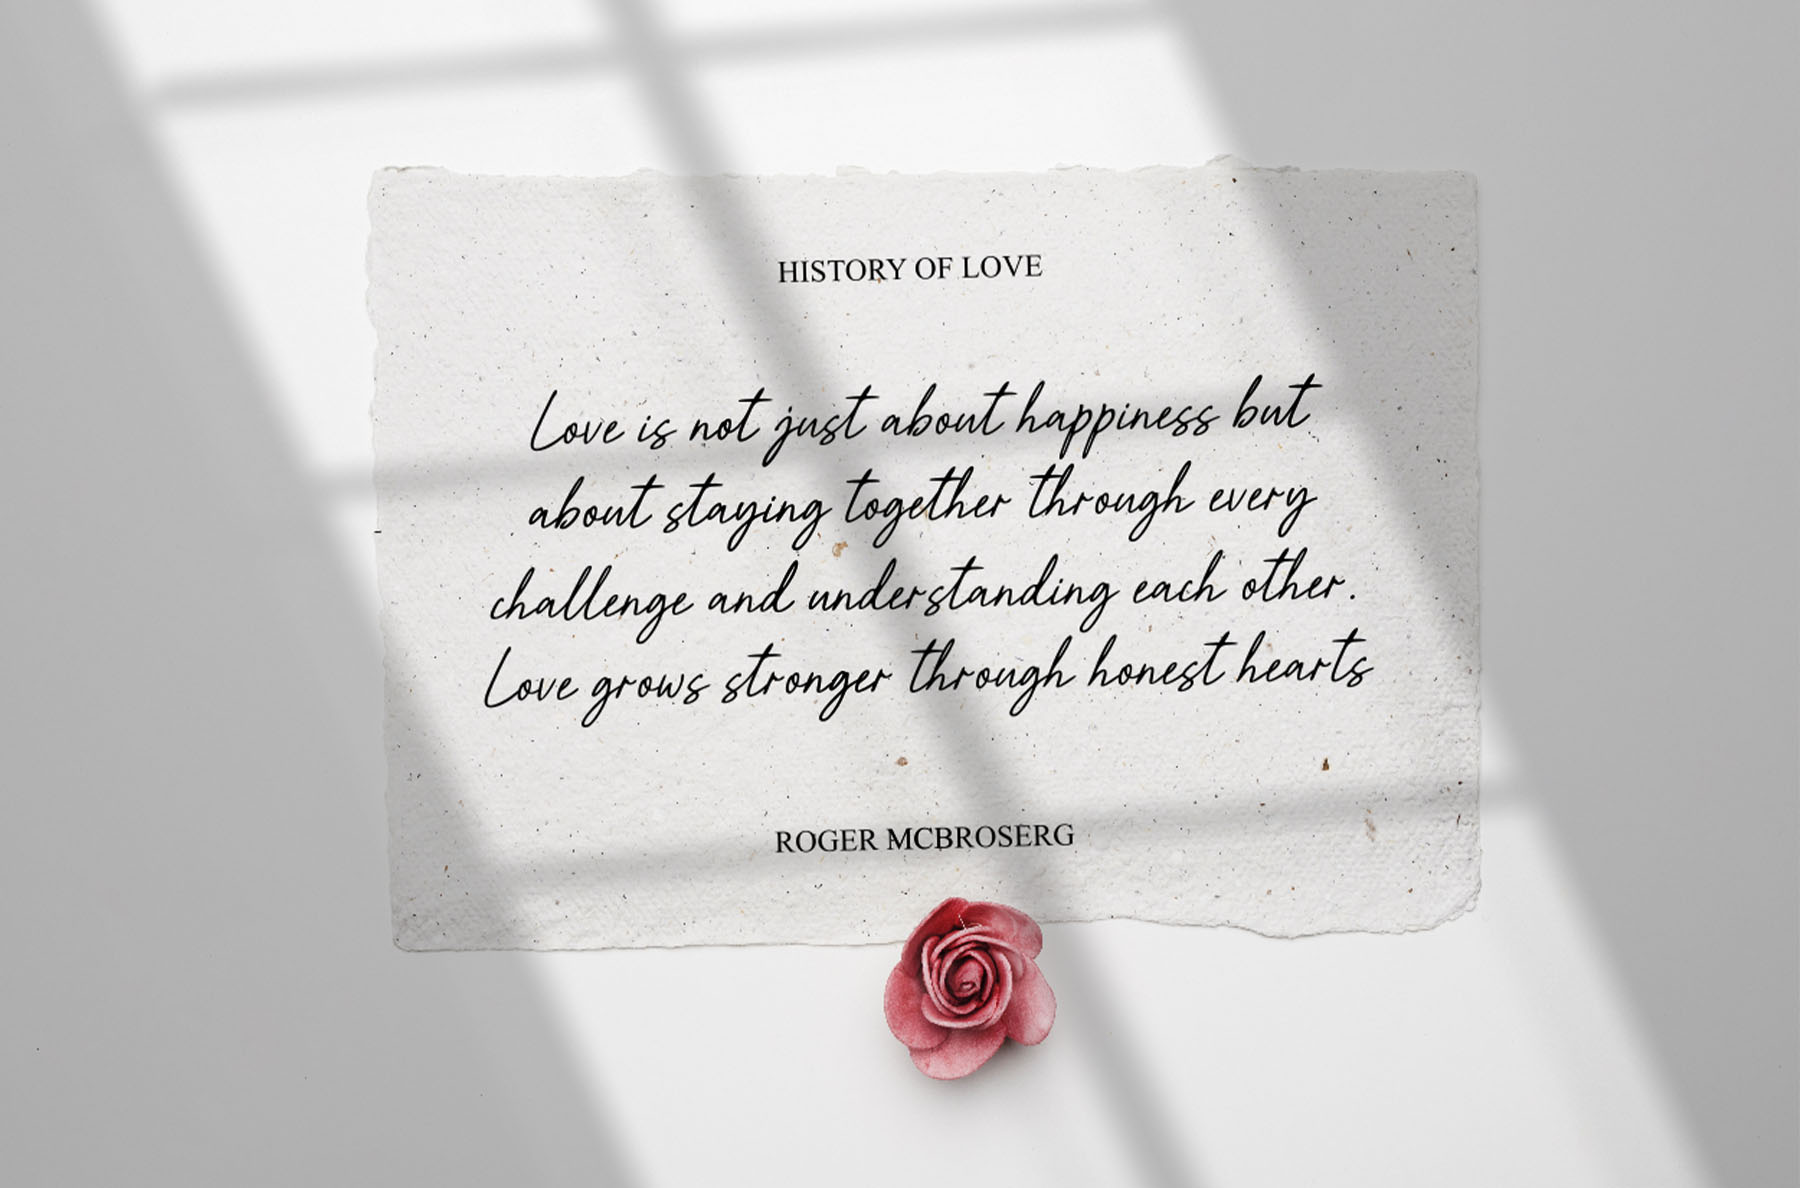 HISTORY OF LOVE
Love is not just about happiness but
about staying together through every
challenge and understanding each other.
Love grows stronger through honest hearts
ROGER MCBROSERG